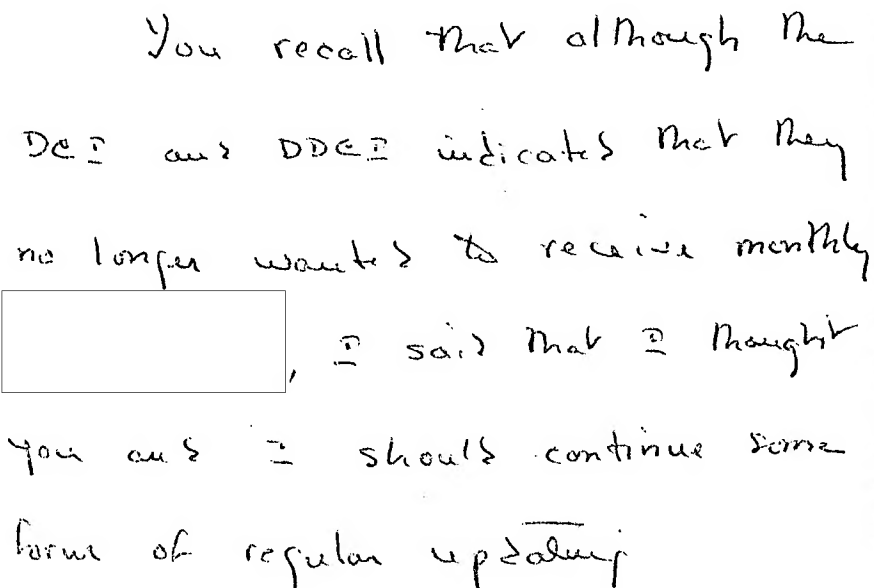 You recall that although the
DCI and DDCI indicated that they
no longer wanted to receive monthly
, I said that I thought
you and I should continue some
form of regular updating